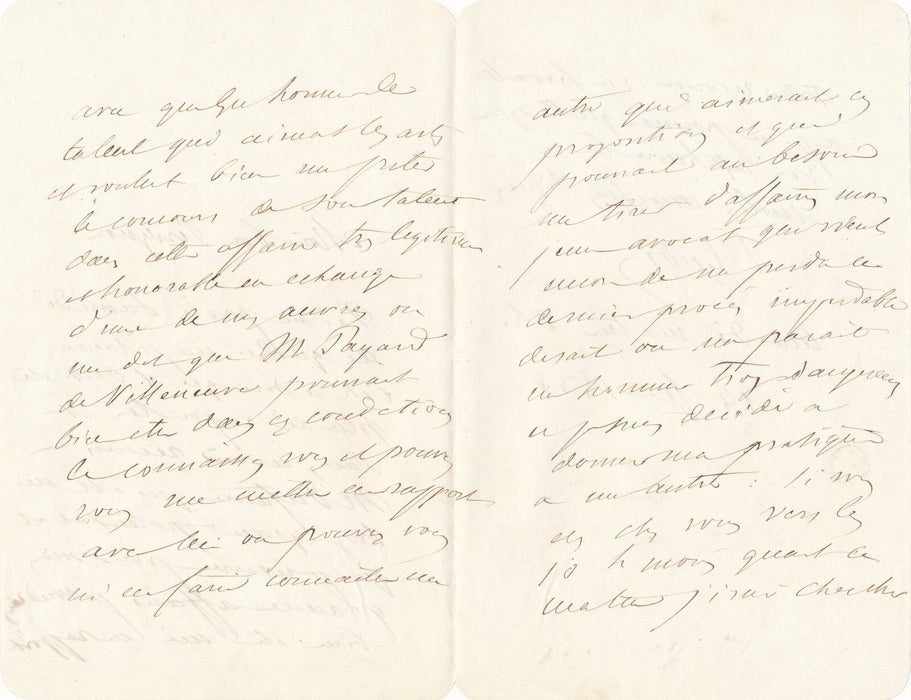 avec quelque homme de
talent qui aimat les arts
et voulut bien me preter
le concours de son talent
dans cette affaire tres legitime
et honorable en echange
d'une de mes œuvres on
me dit que M Payard
de Villeneuve pourrait
bien etre dans ces conditions
le connaissez vous et pouvez
vous me mettre en rapport
avec lui ou pouvez vous
m'en faire connaitre un
autre qui aimerait ces
propositions et qui
pourrait au besoin
me tirer d'affaire mon
jeune avocat qui vient
de me perdre ce
dernier procès imperdable
disait on me parait
un homme trop dangereux
je suis décidé a
donner ma pratique
a un autre. Si vous
etes chez vous vers les
10 h moins quart ce
matin j'irai chercher